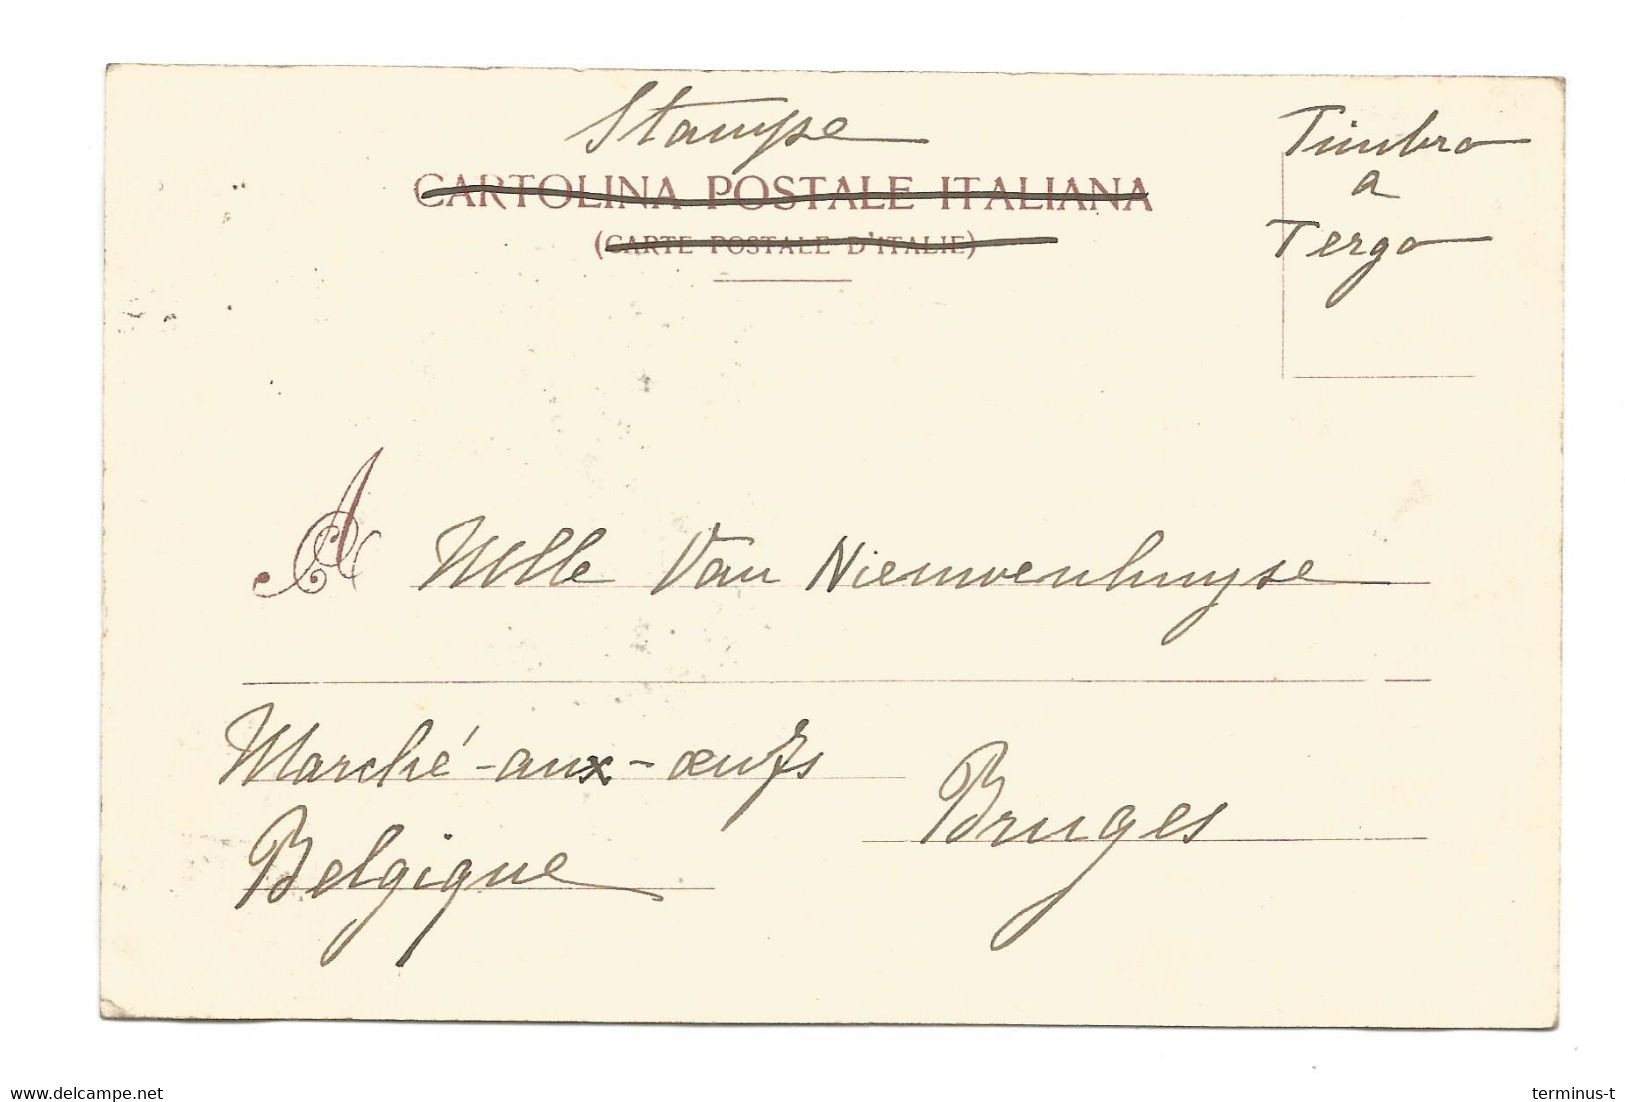 Stampe
CARTOLINA POSTALE ITALIANA
(CARTE POSTALE D'ITALIE)
Timbro
a
Tergo
A Melle Van Nieuwenhuyse
Marché-aux-œufs
Bruges
Belgique
delcampe.net
terminus-t